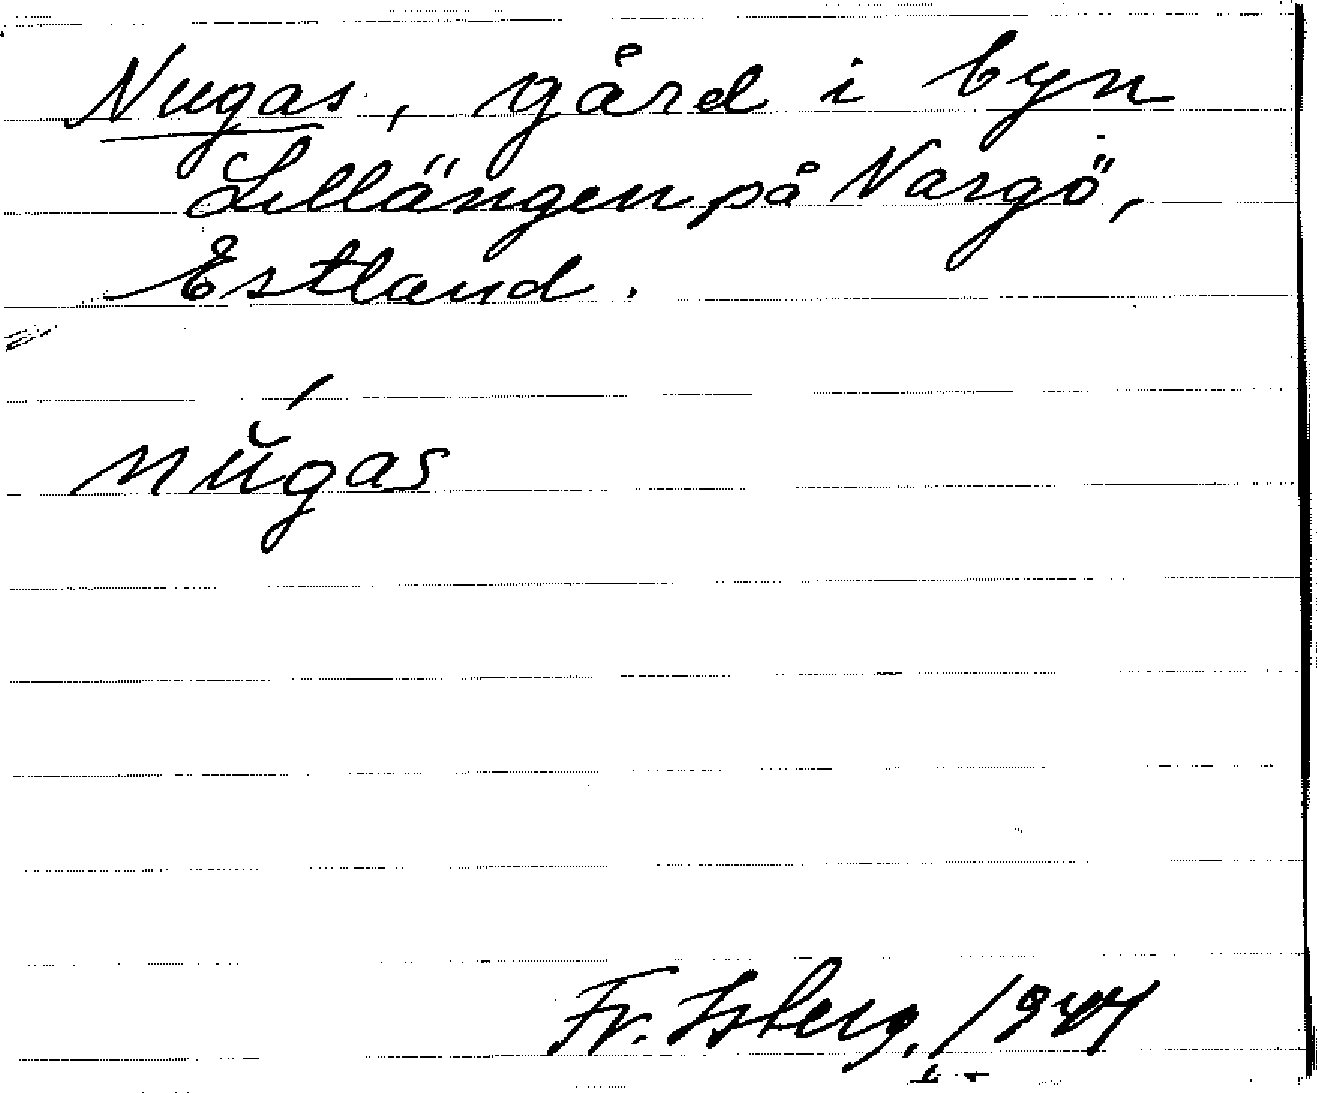 Nugas, gård i byn
Lillängen på Nargö,
Estland.
nŭ́gas
Fr. Isberg, 1944